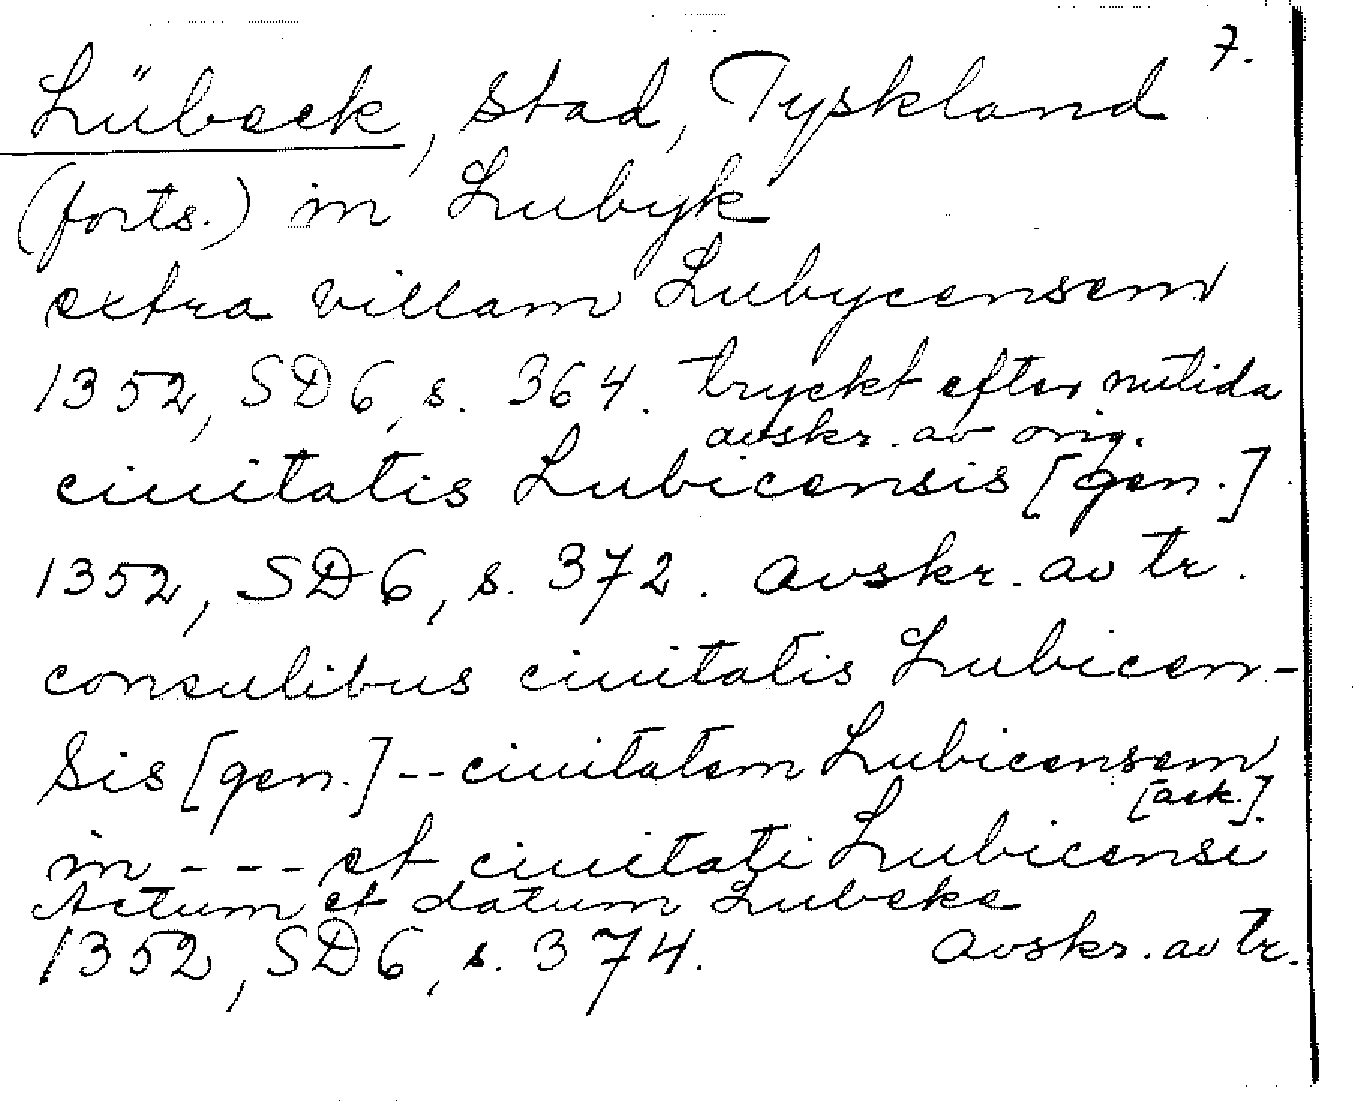 7.
Lübeck, stad, Tyskland
(forts.) in Lubyk
extra villam Lubycensem
1352, SD6, s. 364. tryckt efter nutida
avskr. av orig.
ciuitatis Lubicensis [gen.]
1352, SD6, s. 372. avskr. av tr.
consulibus ciuitatis Lubicen-
sis [gen.] -- ciuitatem Lubicensem
[ack.]
in - - - et ciuitati Lubicensi
Actum et datum Lubeke
1352, SD6, s. 374. avskr. av tr.